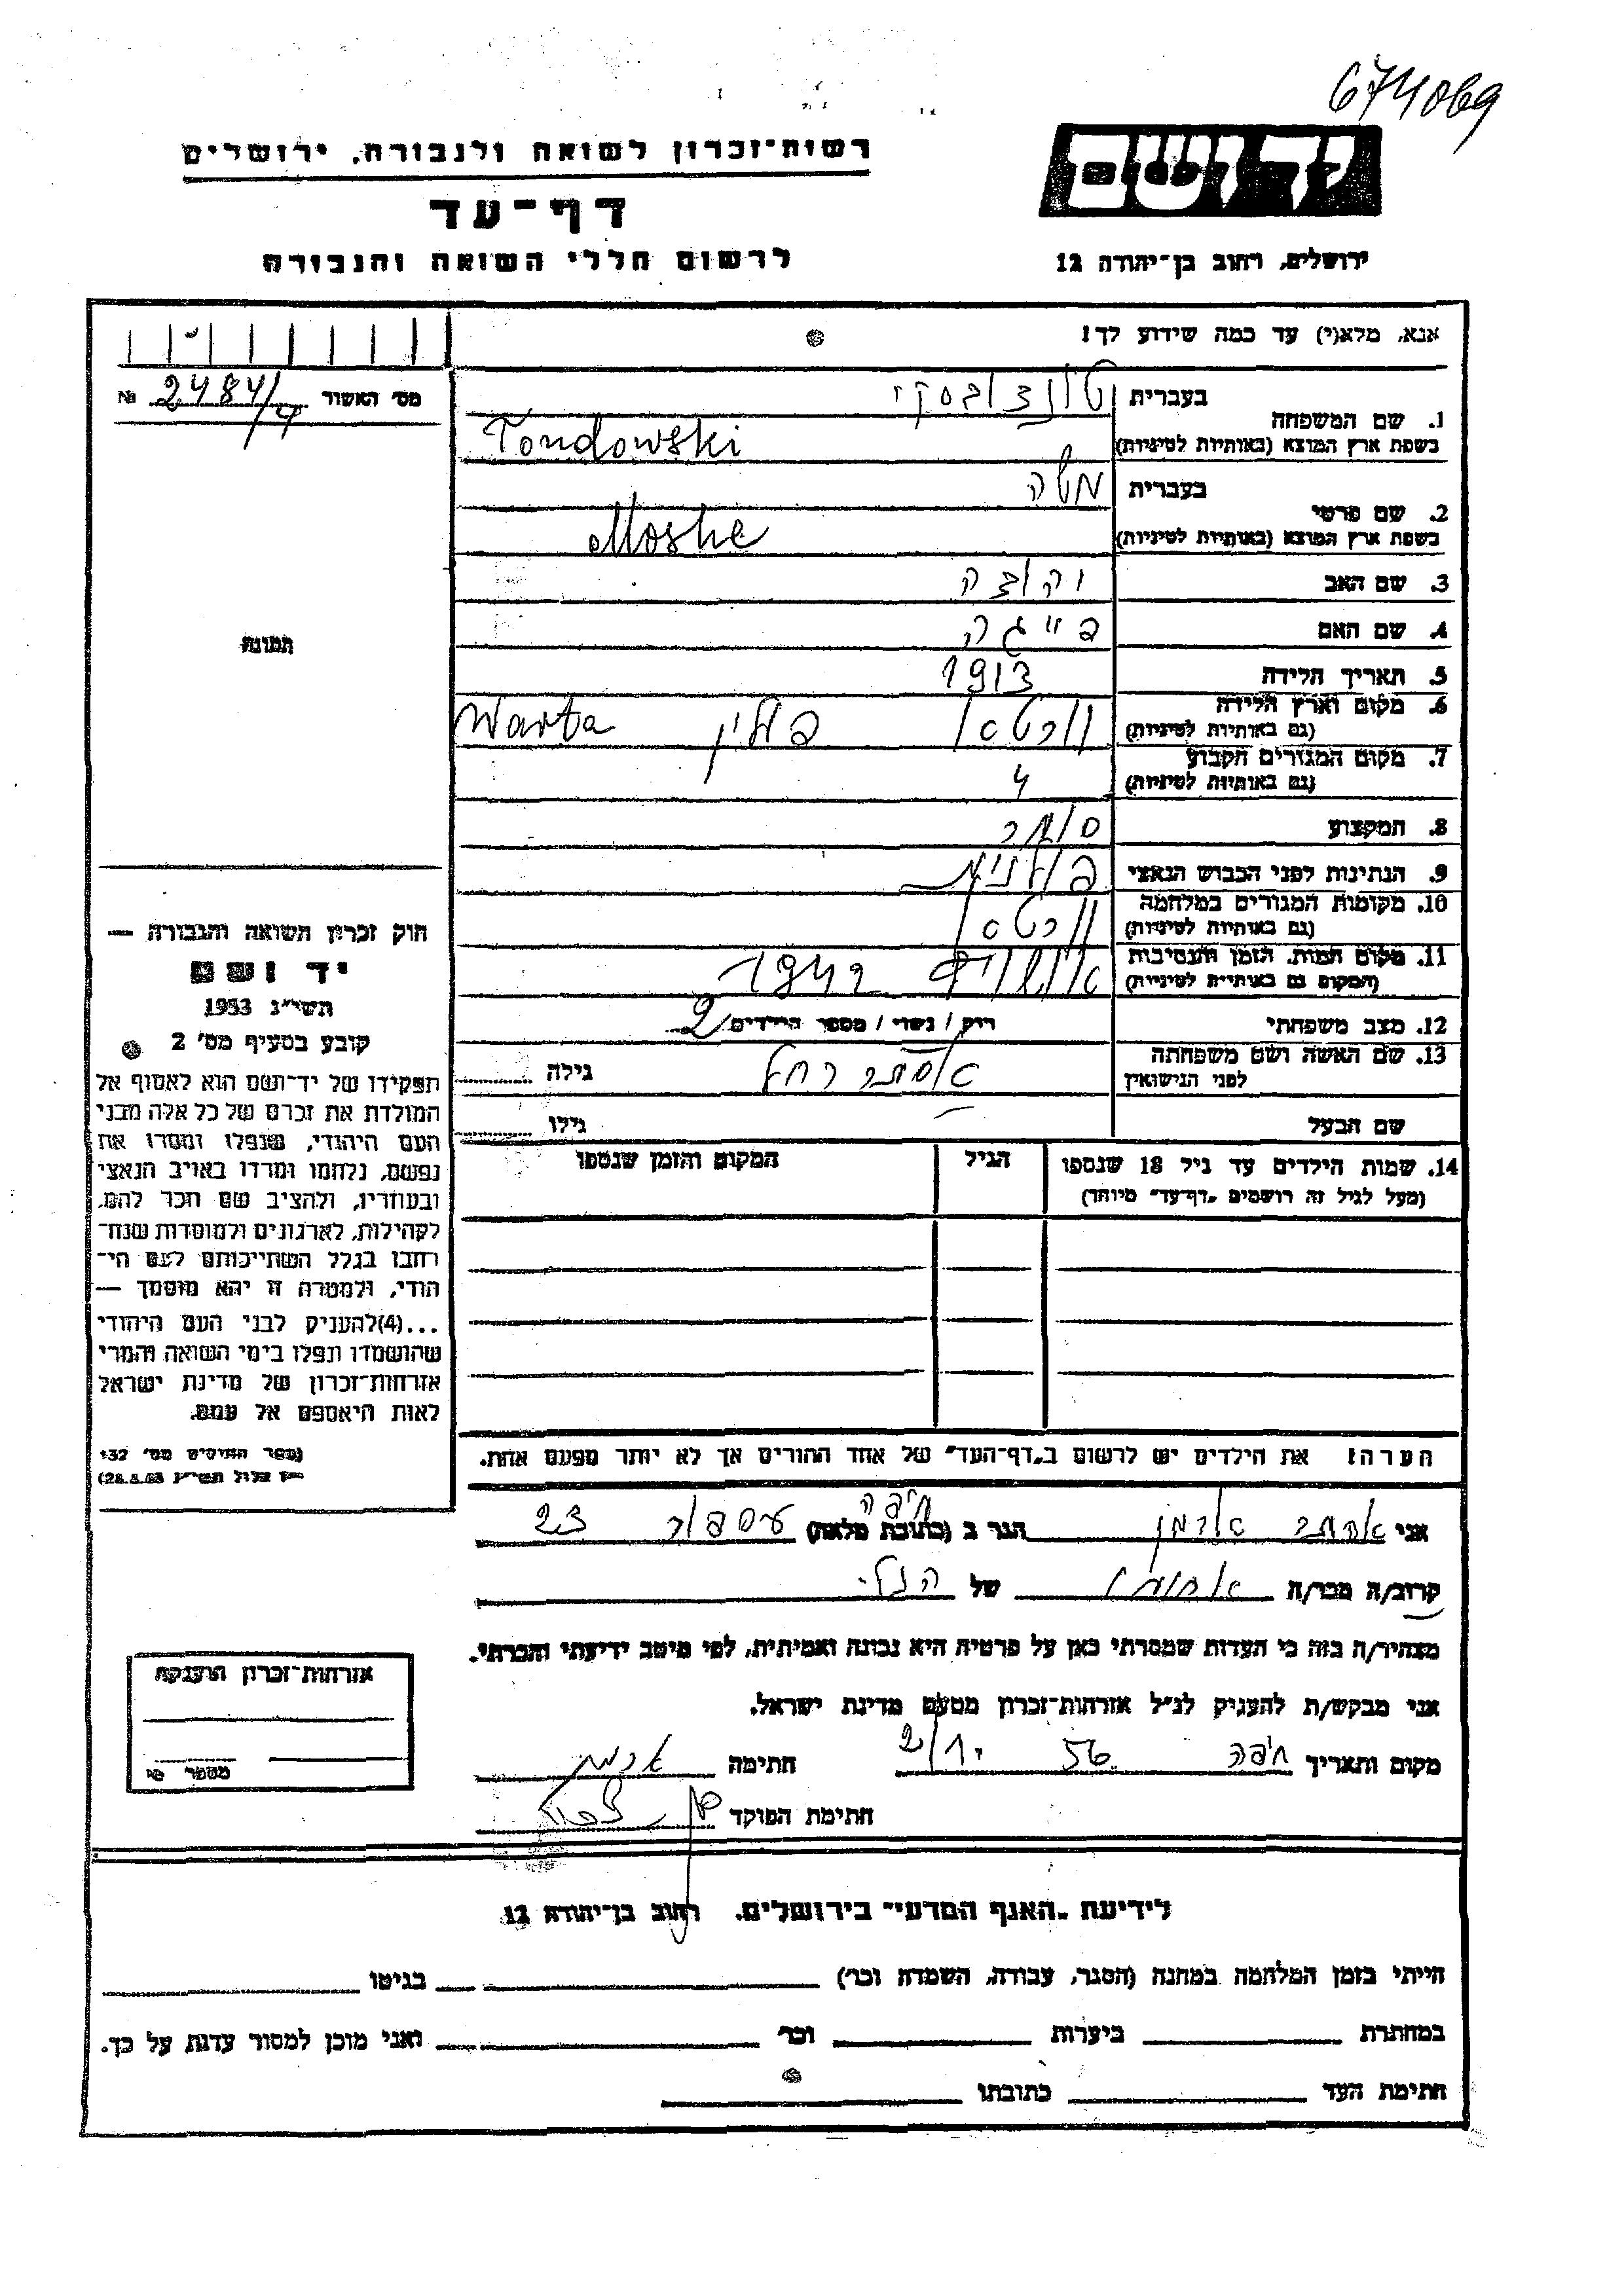 6741069
רשות-זכרון לשואה ולגבורה, ירושלים
יד ושם
דף-עד
לרשום חללי השואה והגבורה
ירושלים, רחוב בן-יהודה 12
אנא, מלא(י) עד כמה שידוע לך!
מס׳ האשור 2484/4 №
1. שם המשפחה בעברית טונדובסקי
בשפת ארץ המוצא (באותיות לטיניות) Tondowski
2. שם פרטי בעברית משה
בשפת ארץ המוצא (באותיות לטיניות) Moshe
3. שם האב
4. שם האם פייגה
5. תאריך הלידה 1913
6. מקום וארץ הלידה (גם באותיות לטיניות) ורטא פולין Warta
7. מקום המגורים הקבוע (גם באותיות לטיניות)
8. המקצוע סוחר
9. הנתינות לפני הכבוש הנאצי פולנית
10. מקומות המגורים במלחמה (גם באותיות לטיניות) ורטא
11. מקום המות, הזמן והנסיבות (המקום גם באותיות לטיניות) 1942
12. מצב משפחתי רווק / נשוי / מספר הילדים 2
13. שם האשה ושם משפחתה לפני הנישואין אסתר רחל גילה
שם הבעל — גילו
14. שמות הילדים עד גיל 18 שנספו (מעל לגיל זה רושמים „דף-עד״ מיוחד) הגיל המקום והזמן שנספו
הערה: את הילדים יש לרשום ב„דף-העד״ של אחד ההורים אך לא יותר מפעם אחת.
תמונה
חוק זכרון השואה והגבורה —
יד ושם
תשי״ג 1953
קובע בסעיף מס׳ 2
תפקידו של יד-ושם הוא לאסוף אל
המולדת את זכרם של כל אלה מבני
העם היהודי, שנפלו ומסרו את
נפשם, נלחמו ומרדו באויב הנאצי
ובעוזריו, ולהציב שם וזכר להם,
לקהילות, לארגונים ולמוסדות שנח-
רבו בגלל השתייכותם לעם הי-
הודי, ולמטרה זו יהא מוסמך —
...(4)להעניק לבני העם היהודי
שהושמדו ונפלו בימי השואה והמרי
אזרחות-זכרון של מדינת ישראל
לאות היאספם אל עמם.
(ספר החוקים מס׳ 132
י״ז אלול תשי״ג 28.8.53)
אני אסתר ארמן הגר ב (כתובת מלאה) חיפה 23
קרוב/ה מכר/ה אחותו של הנ״ל
מצהיר/ה בזה כי העדות שמסרתי כאן על פרטיה היא נכונה ואמיתית, לפי מיטב ידיעתי והכרתי.
אני מבקש/ת להעניק לנ״ל אזרחות-זכרון מטעם מדינת ישראל.
מקום ותאריך חיפה חתימה ארמן
חתימת הפוקד
אזרחות-זכרון הוענקה
מספר №
לידיעת „האגף המדעי״ בירושלים, רחוב בן-יהודה 12
הייתי בזמן המלחמה במחנה (הסגר, עבודה, השמדה וכר׳) בגיטו
במחתרת ביערות וכר׳ ואני מוכן למסור עדות על כך.
חתימת העד כתובתו